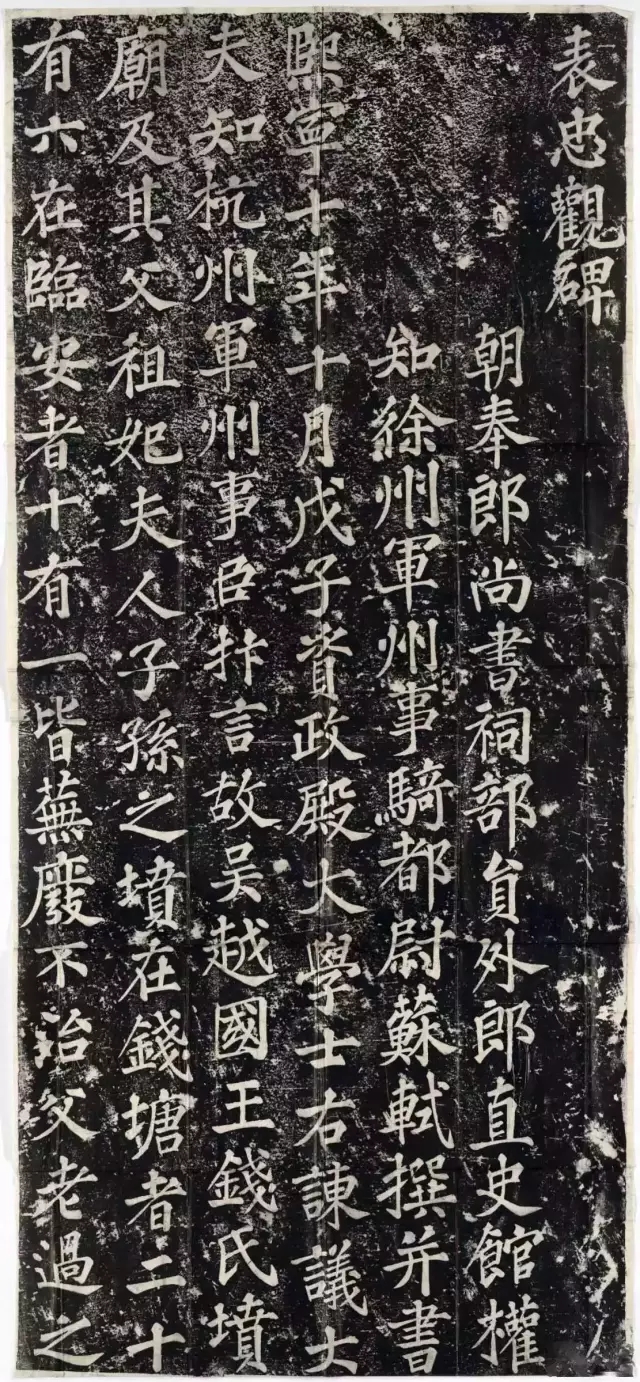 表忠觀碑
朝奉郎尚書祠部員外郎直史館權
知徐州軍州事騎都尉蘇軾撰并書
熙寧十年十月戊子資政殿大學士右諫議大
夫知杭州軍州事臣抃言故吴越國王錢氏墳
廟及其父祖妃夫人子孫之墳在錢塘者二十
有六在臨安者十有一皆蕪廢不治父老過之